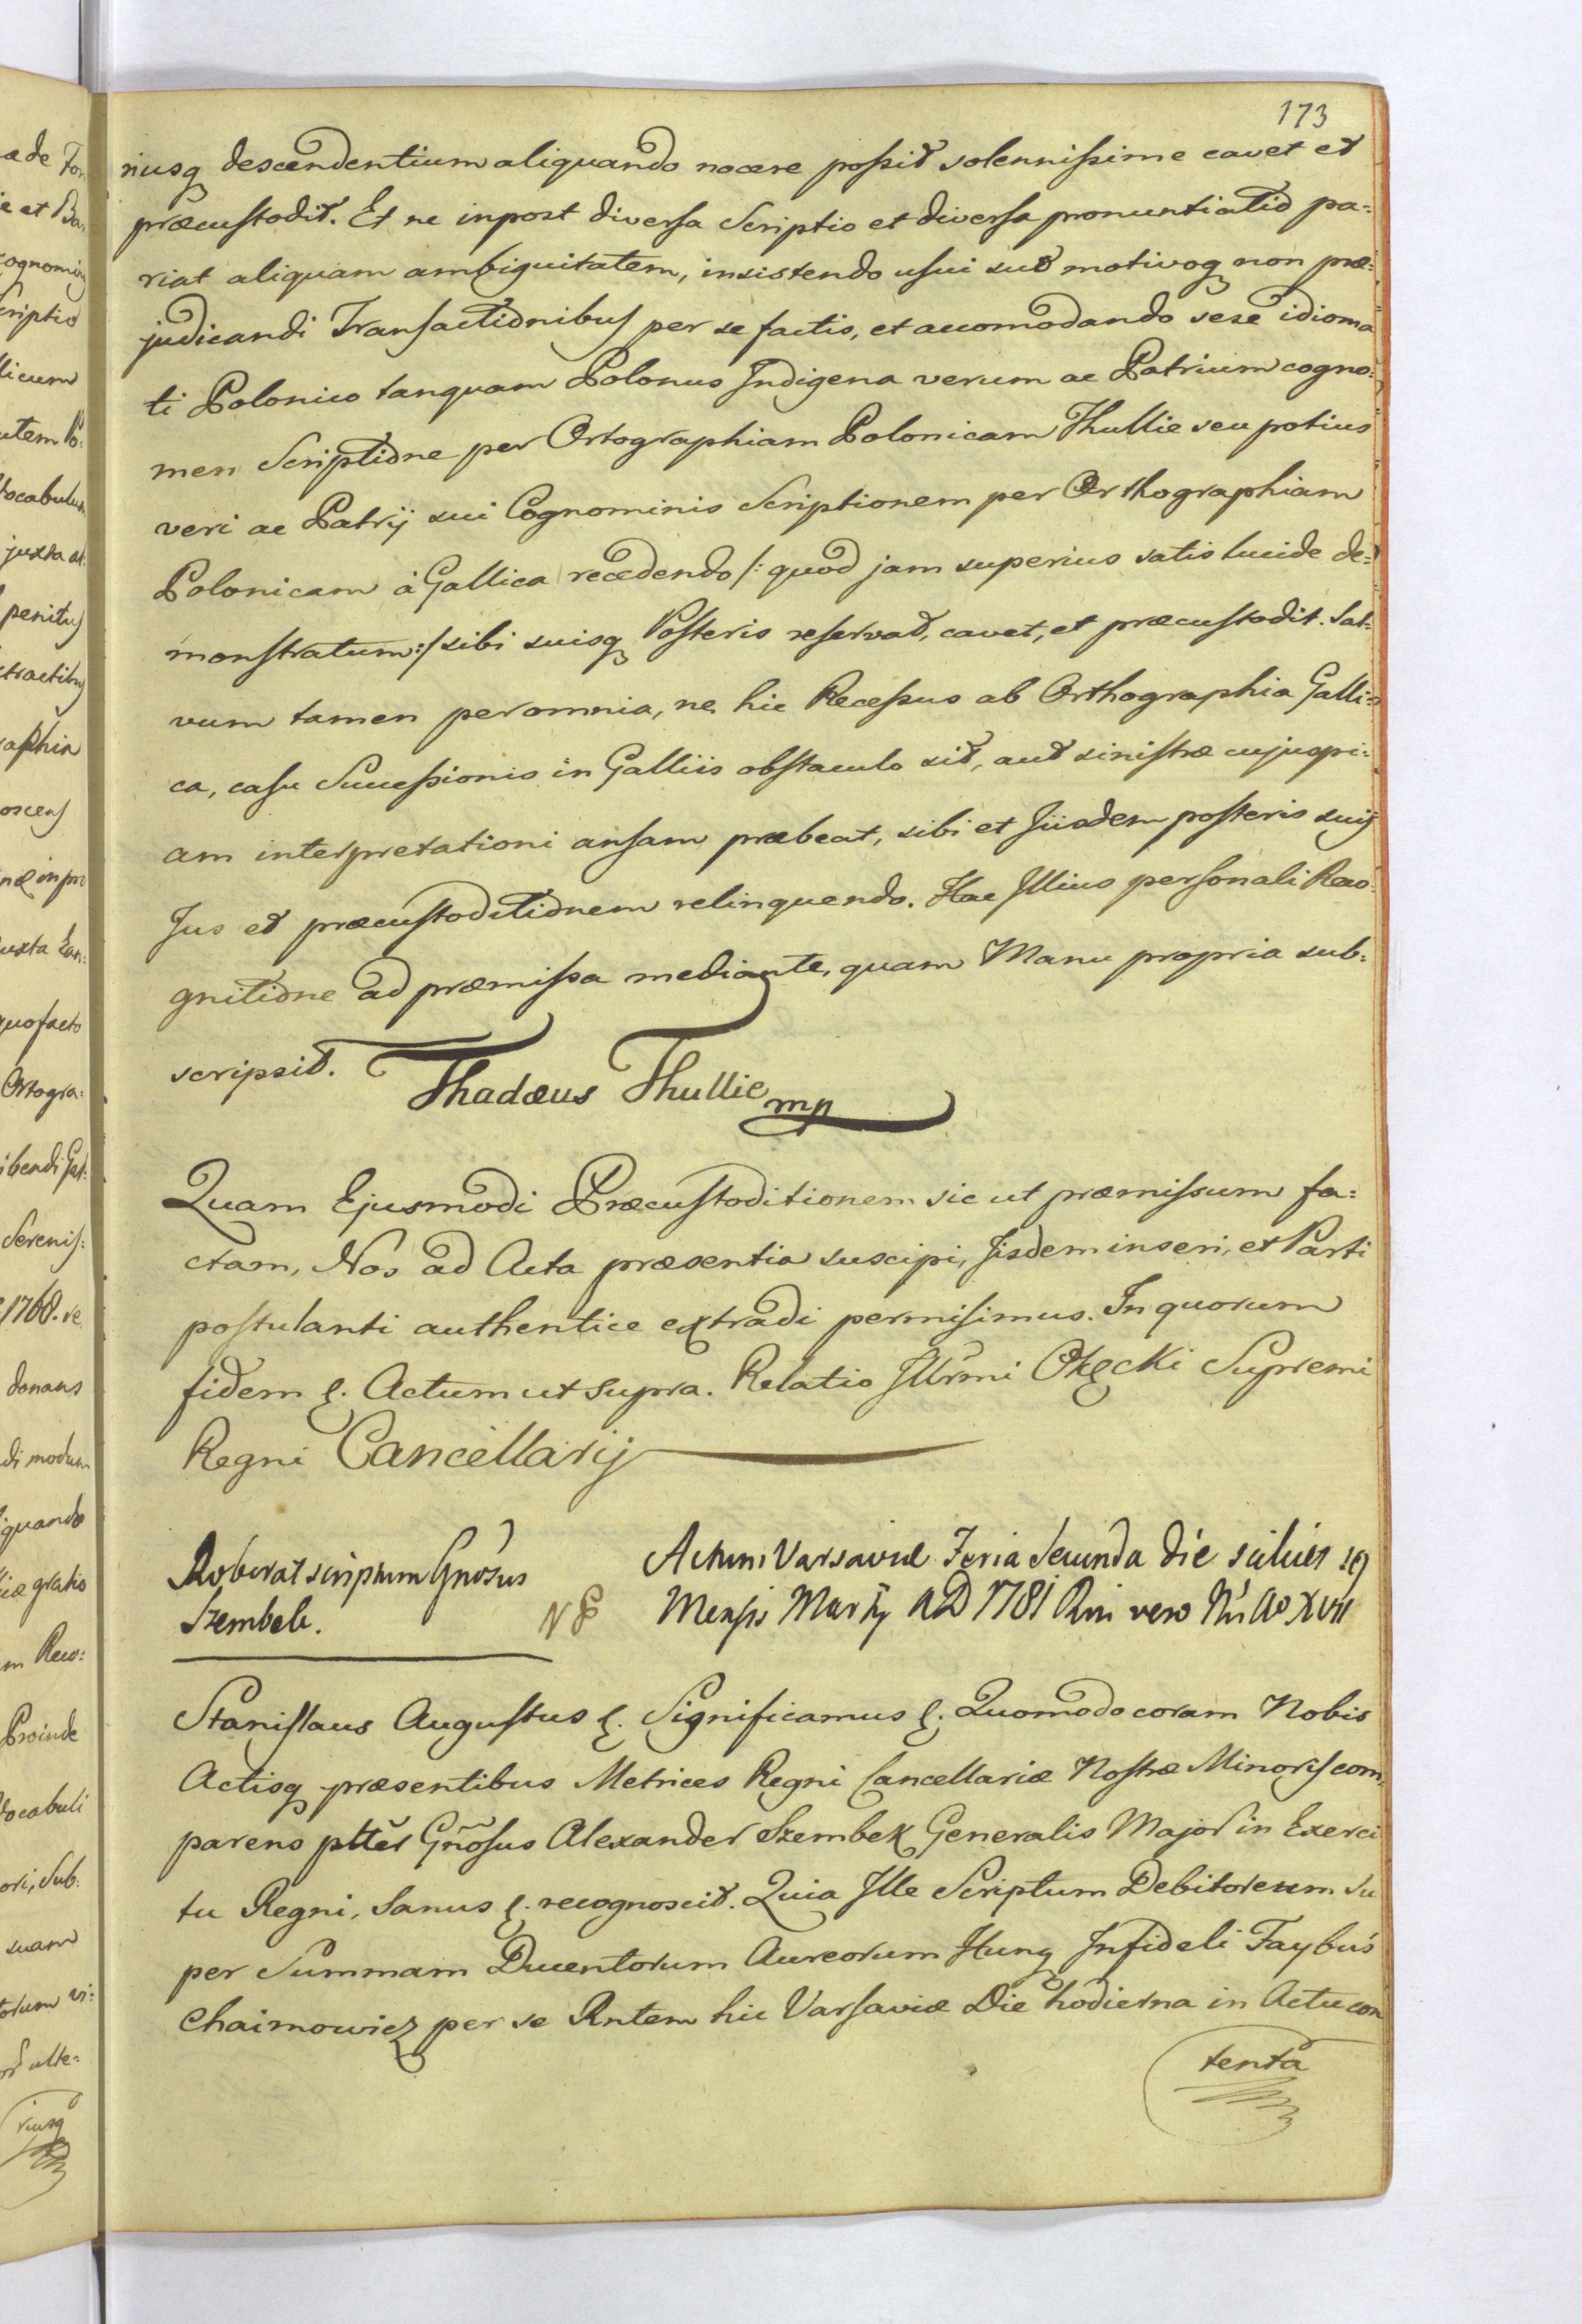 173
riusq descendentium aliquando nocere possit solennissime cavet et
præcustodit. Et ne inpost diversa Scriptio et diversa pronuntiatio pa=
riat aliquam ambiguitatem, insistendo usui suo motivoq non præ=
judicandi Transactionibus per se factis, et accomodando sese idioma
ti Polonico tanquam Polonus Indigena verum ac Patrium cogno=
men Scriptione per Ortographiam Polonicam Thullie seu potius
veri ac Patrij sui Cognominis Scriptionem per Orthographiam
Polonicam à Gallica recedendo /: quod jam superius satis lucide de=
monstratum :/ sibi suisq Posteris reservat, cavet, et præcustodit. Sal=
vum tamen per omnia, ne hic Recessus ab Orthographia Galli=
ca, casu Successionis in Galliis obstaculo sit, aut sinistræ cujuspi=
am interpretationi ansam præbeat, sibi et Iisdem posteris suis
Jus et præcustoditionem relinquendo. Hac Illius personali Reco=
gnitione ad præmissa mediante, quam Manu propria sub=
scripsit. Thadæus Thullie mp
Quam Ejusmodi Præcustoditionem sic ut præmissum fa=
ctam, Nos ad Acta præsentia suscipi, Iisdem inseri, et Parti
postulanti authentice extradi permisimus. In quorum
fidem &. Actum ut supra. Relatio Illrmi Okęcki Supremi
Regni Cancellarij
Roborat scriptum Gnosus
Szembek.
NB
Actum Varsaviæ Feria Secunda die scilicet 19
Mensis Martij AD 1781 Rni vero Nri Ao XVII
Stanislaus Augustus &. Significamus &. Quomodo coram Nobis
Actisq præsentibus Metrices Regni Cancellariæ Nostræ Minoris com=
parens pltĕr Gñosus Alexander Szembek Generalis Major in Exerci
tu Regni, Sanus &. recognoscit. Quia Ille Scriptum Debitoreum su
per Summam Ducentorum Aureorum Hung Infideli Faybuś
Chaimowicz per se Rntem hic Varsaviæ Die hodierna in Actu con
tenta